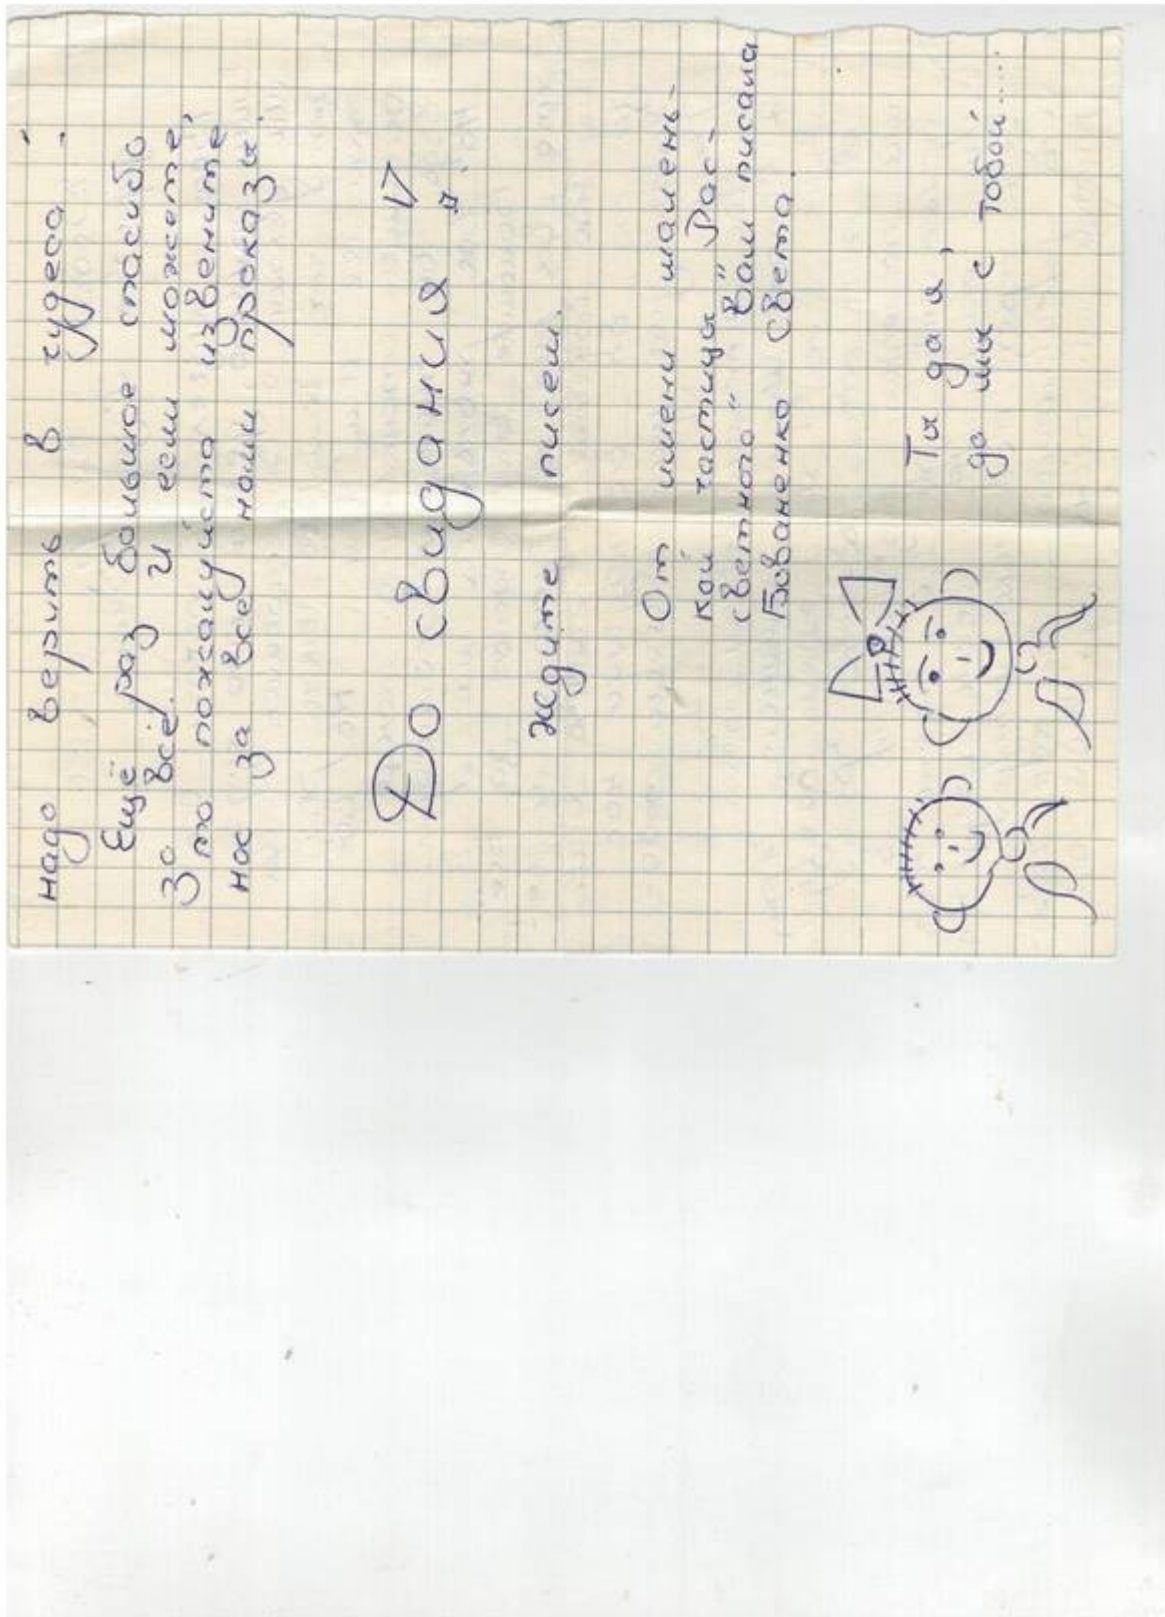 надо верить в чудеса!
Ещё раз большое спасибо
за всё. И если можете,
то пожалуйста извените
нас за все наши проказы.
До свидания!
Ждите писем.
От имени малень-
кой частицы "Рас-
светного" Вам писала
Бованенко Света.
Ты да я,
да мы с тобой.....